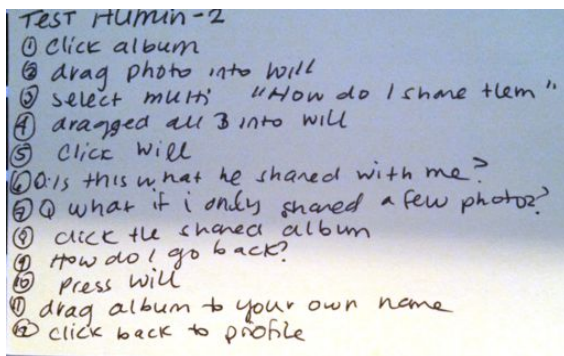 Test Humin-2
① Click album
② drag photo into will
③ select multi "How do I share them"
④ dragged all 3 into will
⑤ Click Will
⑥ Q: is this what he shared with me?
⑦ Q what if i only shared a few photos?
⑧ click the shared album
⑨ How do I go back?
⑩ Press Will
⑪ drag album to your own name
⑫ click back to profile